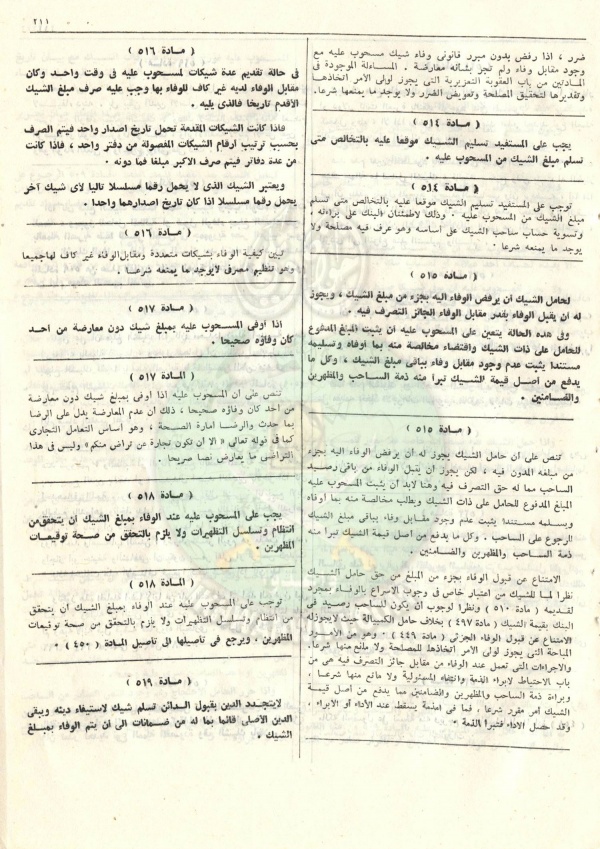 ٢١١
ضرر ، اذا رفض بدون مبرر قانونى وفاء شيك مسحوب عليه مع
وجود مقابل وفاء ولم تجر بشأنه معارضة . المساءلة الموجودة فى
المادتين من باب العقوبة التعزيرية التى يجوز لولى الأمر اتخاذها
وتقديرها لتحقيق المصلحة وتعويض الضرر ولا يوجد ما يمنعها شرعا.
( مادة ٥١٤ )
يجب على المستفيد تسليم الشيك موقعا عليه بالتخالص متى
تسلم مبلغ الشيك من المسحوب عليه .
( مادة ٥١٤ )
توجب على المستفيد تسليم الشيك موقعا عليه بالتخالص متى تسلم
مبلغ الشيك من المسحوب عليه . وذلك لاطمئنان البنك على براءته ،
وتسوية حساب صاحب الشيك على أساسه وهو عرف فيه مصلحة ولا
يوجد ما يمنعه شرعا .
( مادة ٥١٥ )
لحامل الشيك أن يرفض الوفاء اليه بجزء من مبلغ الشيك ، ويجوز
له أن يقبل الوفاء بقدر مقابل الوفاء الجائز التصرف فيه .
وفى هذه الحالة يتعين على المسحوب عليه ان يثبت المبلغ المدفوع
للحامل على ذات الشيك واقتضاء مخالصة منه بما أوفاه وتسليمه
مستندا يثبت عدم وجود مقابل وفاء بباقى مبلغ الشيك ، وكل ما
يدفع من أصل قيمة الشيك تبرأ منه ذمة الساحب والمظهرين
والضامنين .
( مادة ٥١٥ )
تنص على أن حامل الشيك يجوز له أن يرفض الوفاء اليه بجزء
من مبلغه المدون فيه ، لكن يجوز أن يقبل الوفاء من باقى رصيد
الساحب مما له حق التصرف فيه وهنا لابد أن يثبت المسحوب عليه
المبلغ المدفوع للحامل على ذات الشيك ويطلب مخالصة منه بما أوفاه
ويسلمه مستندا يثبت عدم وجود مقابل وفاء بباقى مبلغ الشيك
الرجوع على الساحب . وكل ما يدفع من أصل قيمة الشيك تبرأ منه
ذمة الساحب والمظهرين والضامنين .
الامتناع عن قبول الوفاء بجزء من المبلغ من حق حامل الشيك
نظرا لما للشيك من اعتبار خاص فى وجوب الاسراع بالوفاء بمجرد
تقديمه ( مادة ٥١٠ ) ونظرا لوجوب أن يكون للساحب رصيد فى
البنك بقيمة الشيك ( مادة ٤٩٧ ) بخلاف حامل الكمبيالة حيث لايجوز له
الامتناع عن قبول الوفاء الجزئى ( مادة ٤٤٩ ) . وهو من الأمور
المباحة التى يجوز لولى الأمر اتخاذها للمصلحة ولا مانع منها شرعا.
والاجراءات التى تعمل عند الوفاء من مقابل جائز التصرف فيه هى من
باب الاحتياط لابراء الذمة وانتفاء المسئولية ولا مانع منها شرعا ،
وبراءة ذمة الساحب والمظهرين والضامنين مما يدفع من أصل قيمة
الشيك أمر مقرر شرعا ، فما فى الذمة يسقط عند الأداء أو الابراء .
وقد حصل الاداء فتبرأ الذمة .
( مادة ٥١٦ )
فى حالة تقديم عدة شيكات لمسحوب عليه فى وقت واحد وكان
مقابل الوفاء لديه غير كاف للوفاء بها وجب عليه صرف مبلغ الشيك
الأقدم تاريخا فالذى يليه .
فاذا كانت الشيكات المقدمة تحمل تاريخ اصدار واحد فيتم الصرف
بحسب ترتيب أرقام الشيكات المفصولة من دفتر واحد ، فاذا كانت
من عدة دفاتر فيتم صرف الاكبر مبلغا فما دونه .
ويعتبر الشيك الذى لا يحمل رقما مسلسلا تاليا لأى شيك آخر
يحمل رقما مسلسلا اذا كان تاريخ اصدارهما واحدا .
( مادة ٥١٦ )
تبين كيفية الوفاء بشيكات متعددة ومقابل الوفاء غير كاف لها جميعا
وهو تنظيم مصرفى لايوجد ما يمنعه شرعا .
( مادة ٥١٧ )
اذا أوفى المسحوب عليه بمبلغ شيك دون معارضة من أحد
كان وفاؤه صحيحا .
( المادة ٥١٧ )
تنص على أن المسحوب عليه اذا أوفى بمبلغ شيك دون معارضة
من أحد كان وفاؤه صحيحا ، ذلك أن عدم المعارضة يدل على الرضا
بما حدث والرضا امارة الصحة ، وهو أساس التعامل التجارى
كما فى قوله تعالى « الا أن تكون تجارة عن تراض منكم » وليس فى هذا
التراضى ما يعارض نصا صريحا .
( مادة ٥١٨ )
يجب على المسحوب عليه عند الوفاء بمبلغ الشيك أن يتحقق من
انتظام وتسلسل التظهيرات ولا يلزم بالتحقق من صحة توقيعات
المظهرين .
( المادة ٥١٨ )
توجب على المسحوب عليه عند الوفاء بمبلغ الشيك أن يتحقق
من انتظام وتسلسل التظهيرات ولا يلزم بالتحقق من صحة توقيعات
المظهرين . ويرجع فى تأصيلها الى تأصيل المادة ( ٤٥٠ ) .
( مادة ٥١٩ )
لايتجدد الدين بقبول الدائن تسلم شيك لاستيفاء دينه ويبقى
الدين الأصلى قائما بما له من ضمانات الى أن يتم الوفاء بمبلغ
الشيك .